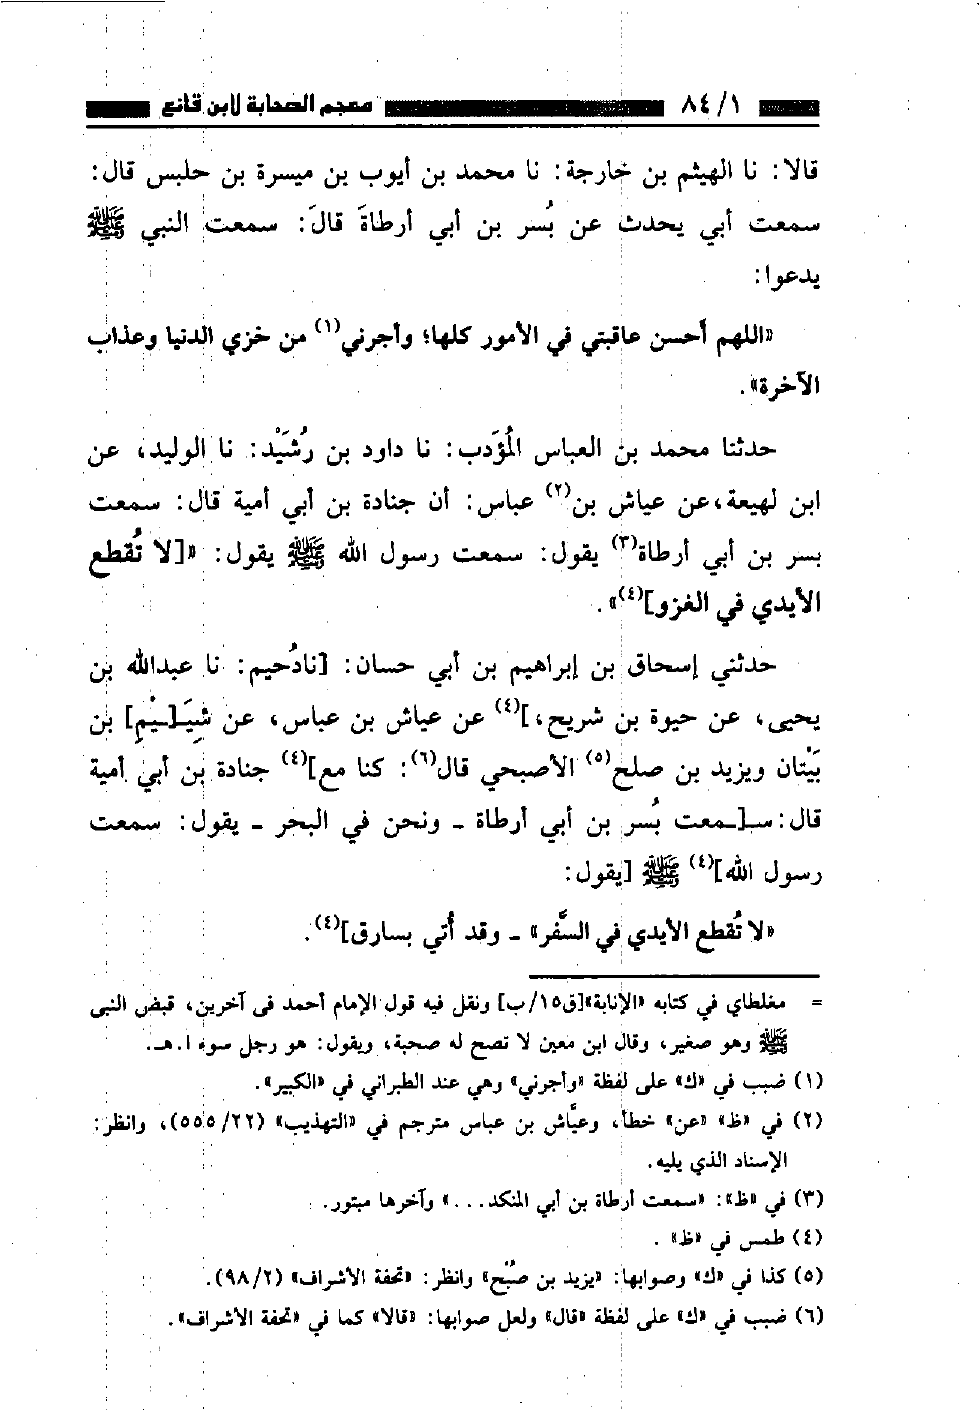 ٨٤/١ معجم الصحابة لابن قانع
قالا: نا الهيثم بن خارجة: نا محمد بن أيوب بن ميسرة بن حلبس قال:
سمعت أبي يحدث عن بُسر بن أبي أرطاة قال: سمعت النبي ﷺ
يدعوا:
«اللهم أحسن عاقبتي في الأمور كلها؛ وأجرني(١) من خزي الدنيا وعذاب
الآخرة».
حدثنا محمد بن العباس المُؤَدب: نا داود بن رُشَيْد: نا الوليد، عن
ابن لهيعة، عن عياش بن(٢) عباس: أن جنادة بن أبي أمية قال: سمعت
بسر بن أبي أرطاة(٣) يقول: سمعت رسول الله ﷺ يقول: «[لا تُقطع
الأيدي في الغزو](٤)».
حدثني إسحاق بن إبراهيم بن أبي حسان: [نادُحيم: نا عبدالله بن
يحيى، عن حيوة بن شريح،](٤) عن عياش بن عباس، عن شِيَـ[ـيْم] بن
بَيْتان ويزيد بن صلح(٥) الأصبحي قال(٦): كنا مع](٤) جنادة بن أبي أمية
قال: سـ[ـمعت بُسر بن أبي أرطاة - ونحن في البحر - يقول: سمعت
رسول الله](٤) ﷺ [يقول:
«لا تُقطع الأيدي في السَّفر» - وقد أُتي بسارق](٤).
= مغلطاي في كتابه «الإنابة»[ق١٥/ب] ونقل فيه قول الإمام أحمد فى آخرين، قبض النبى
ﷺ وهو صغير، وقال ابن معين لا تصح له صحبة، ويقول: هو رجل سوء ا.هـ.
(١) ضبب في «ك» على لفظة «وأجرني» وهي عند الطبراني في «الكبير».
(٢) في «ظ» «عن» خطأ، وعيَّاش بن عباس مترجم في «التهذيب» (٥٥٥/٢٢)، وانظر:
الإسناد الذي يليه.
(٣) في «ظ»: «سمعت أرطاة بن أبي المنكد...» وآخرها مبتور.
(٤) طمس في «ظ».
(٥) كذا في «ك» وصوابها: «يزيد بن صُبْح» وانظر: «تحفة الأشراف» (٩٨/٢).
(٦) ضبب في «ك» على لفظة «قال» ولعل صوابها: «قالا» كما في «تحفة الأشراف».